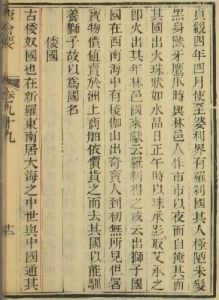 貞觀四年四月使至婆利界有羅刹國其人極陋朱髮
黑身獸牙鷹爪時與林邑人作市市以夜而自掩其面
其國出火珠狀如水晶日正午時以珠承影取艾承之
即火出其年林邑國來獻云羅刹得之或云出獅子國
國在西南海中有稜伽山出奇寶人到初無所見但署
寶物價值賣於洲上商舶依價貨之而去其國以能馴
養獅子故以為國名
倭國
古倭奴國也在新羅東南居大海之中世與中國通其
唐會要 卷九十九